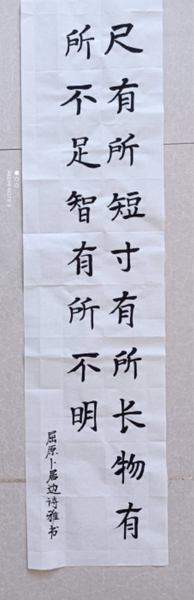 尺有所短寸有所长物有
所不足智有所不明
屈原卜居边诗雅书